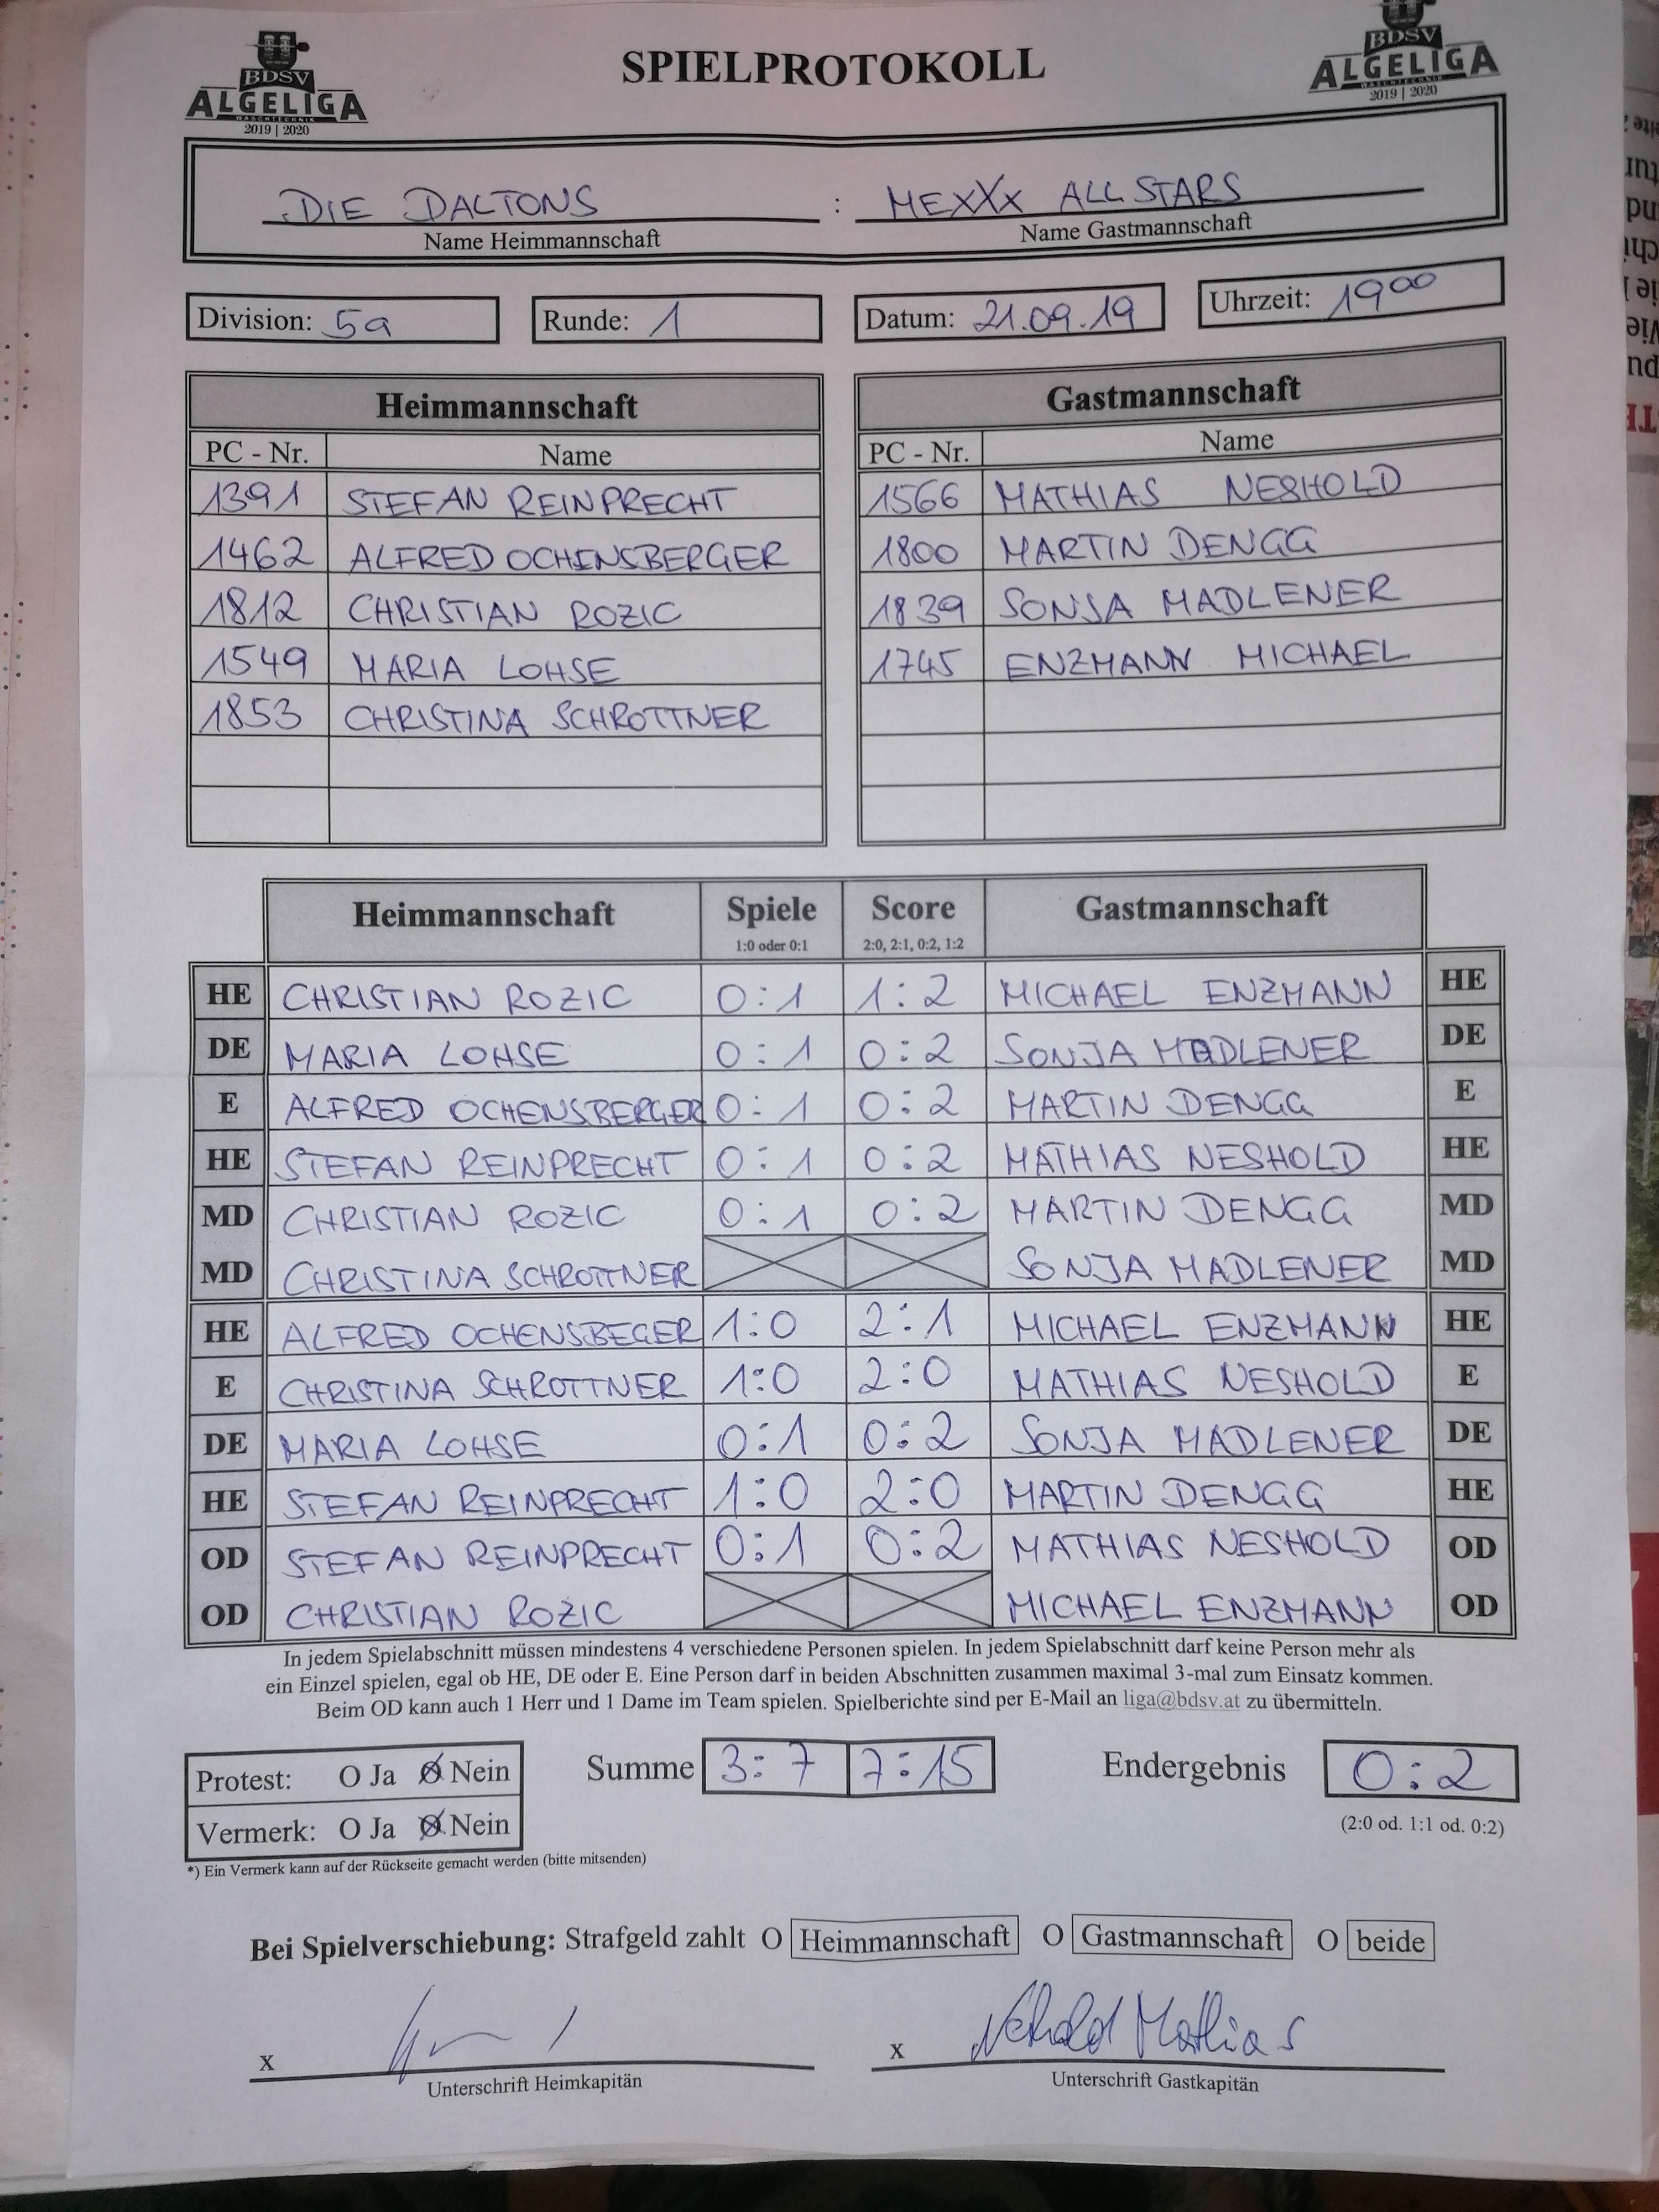 BDSV
ALGELIGA
WASCHTECHNIK
2019 | 2020
SPIELPROTOKOLL
BDSV
ALGELIGA
WASCHTECHNIK
2019 | 2020
DIE DALTONS : MEXXX ALLSTARS
Name Heimmannschaft Name Gastmannschaft
Division: 5a Runde: 1 Datum: 21.09.19 Uhrzeit: 19 00
Heimmannschaft Gastmannschaft
PC - Nr. Name PC - Nr. Name
1391 STEFAN REINPRECHT 1566 MATHIAS NESHOLD
1462 ALFRED OCHENSBERGER 1800 MARTIN DENGG
1812 CHRISTIAN ROZIC 1839 SONJA MADLENER
1549 MARIA LOHSE 1745 ENZMANN MICHAEL
1853 CHRISTINA SCHROTTNER
Heimmannschaft Spiele Score Gastmannschaft
1:0 oder 0:1 2:0, 2:1, 0:2, 1:2
HE CHRISTIAN ROZIC 0:1 1:2 MICHAEL ENZMANN HE
DE MARIA LOHSE 0:1 0:2 SONJA MADLENER DE
E ALFRED OCHENSBERGER 0:1 0:2 MARTIN DENGG E
HE STEFAN REINPRECHT 0:1 0:2 MATHIAS NESHOLD HE
MD CHRISTIAN ROZIC 0:1 0:2 MARTIN DENGG MD
MD CHRISTINA SCHROTTNER SONJA MADLENER MD
HE ALFRED OCHENSBEGER 1:0 2:1 MICHAEL ENZMANN HE
E CHRISTINA SCHROTTNER 1:0 2:0 MATHIAS NESHOLD E
DE MARIA LOHSE 0:1 0:2 SONJA MADLENER DE
HE STEFAN REINPRECHT 1:0 2:0 MARTIN DENGG HE
OD STEFAN REINPRECHT 0:1 0:2 MATHIAS NESHOLD OD
OD CHRISTIAN ROZIC MICHAEL ENZMANN OD
In jedem Spielabschnitt müssen mindestens 4 verschiedene Personen spielen. In jedem Spielabschnitt darf keine Person mehr als
ein Einzel spielen, egal ob HE, DE oder E. Eine Person darf in beiden Abschnitten zusammen maximal 3-mal zum Einsatz kommen.
Beim OD kann auch 1 Herr und 1 Dame im Team spielen. Spielberichte sind per E-Mail an liga@bdsv.at zu übermitteln.
Protest: O Ja O Nein Summe 3:7 7:15 Endergebnis 0:2
Vermerk: O Ja O Nein (2:0 od. 1:1 od. 0:2)
*) Ein Vermerk kann auf der Rückseite gemacht werden (bitte mitsenden)
Bei Spielverschiebung: Strafgeld zahlt O Heimmannschaft O Gastmannschaft O beide
x x Mathias
Unterschrift Heimkapitän Unterschrift Gastkapitän